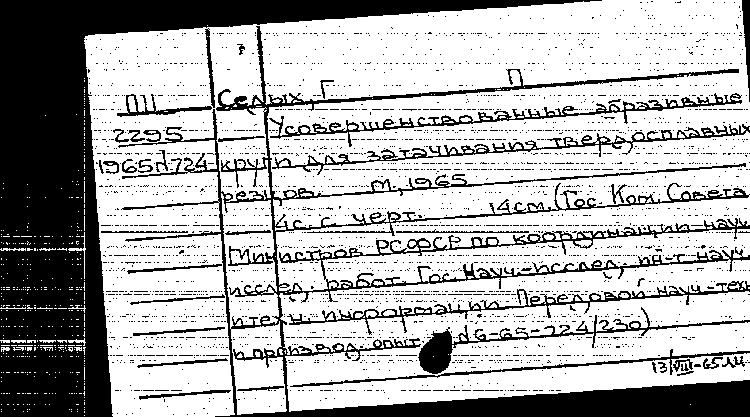 ПII Седых, Г П
2295 Усовершенствованные абразивные
1965П724 круги для затачивания твердосплавных
резцов. М., 1965
4с. с черт. 14см. (Гос. Ком. Совета
Министров РСФСР по координации науч.
исслед. работ. Гос. Науч.-исслед. ин-т науч.
и техн. информации. Передовой науч.-техн.
и производ. опыт №6-65-724/230)
13/VIII-65